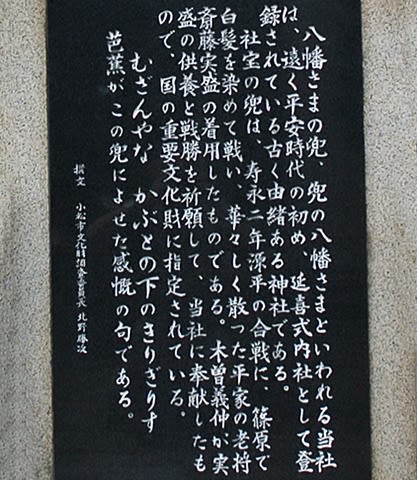 八幡さまの兜 兜の八幡さまといわれる当社
は、遠く平安時代の初め、延喜式内社として登
録されている古く由緒ある神社である。
社宝の兜は、寿永二年源平の合戦に、篠原で
白髪を染めて戦い、華々しく散った平家の老将
斎藤実盛の着用したものである。木曽義仲が実
盛の供養と戦勝を祈願して、当社に奉献したも
ので、国の重要文化財に指定されている。
むざんやな かぶとの下のきりぎりす
芭蕉がこの兜によせた感慨の句である。
撰文 小松市文化財調査委員長 北野勝次